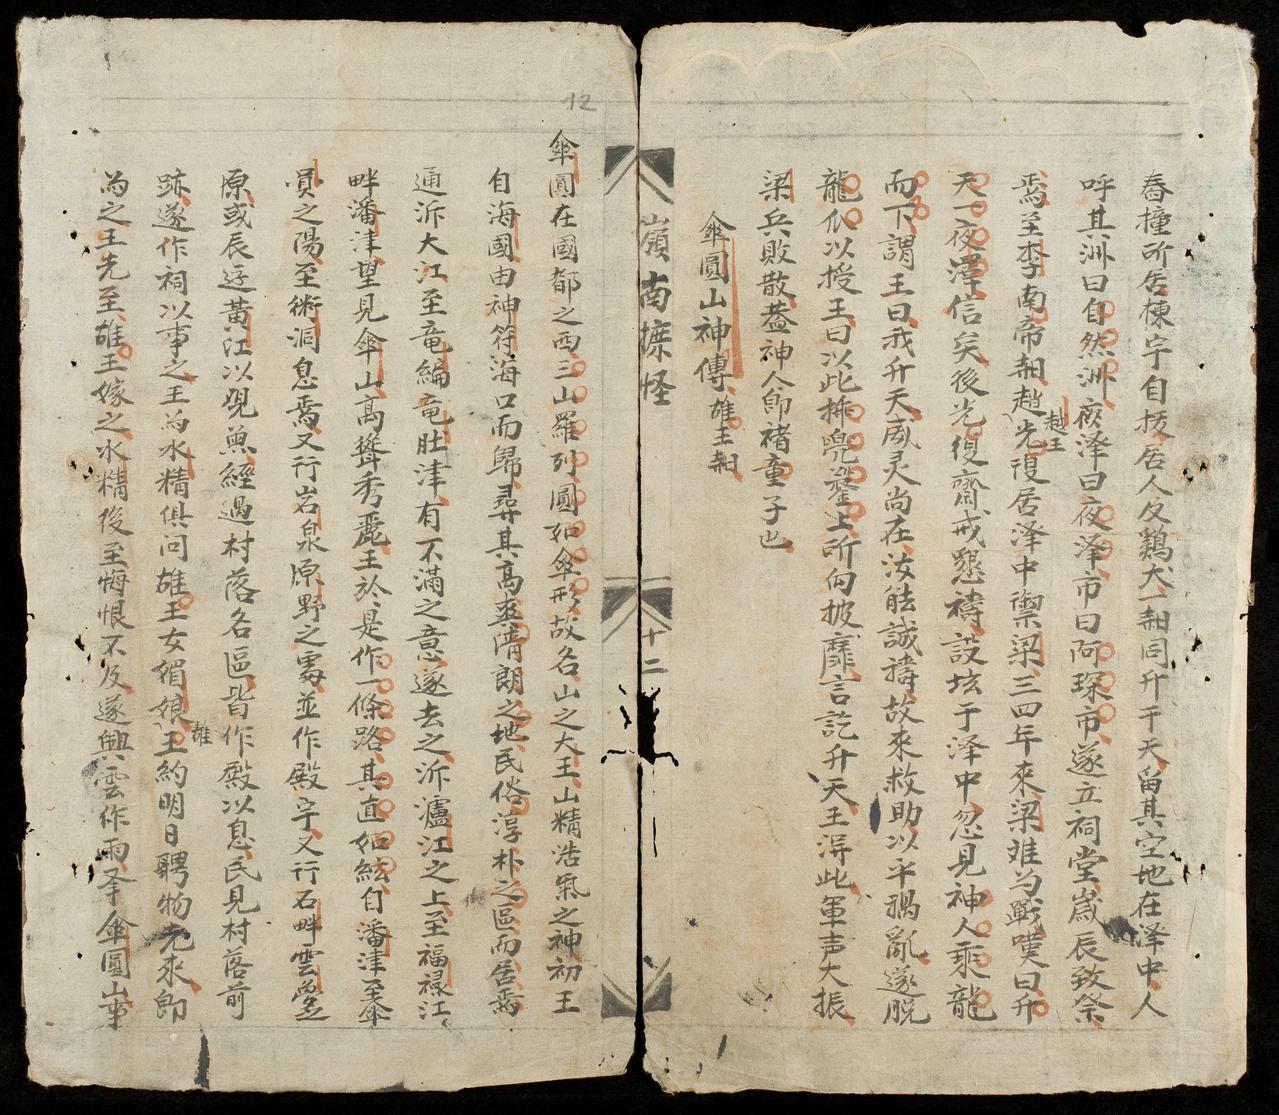 舂撞所居棟宇自拔居人及鷄犬一朝同升于天留其空地在泽中人
呼其洲曰自然洲夜泽曰夜泽市曰阿琛市遂立祠堂歲辰致祭
焉至李南帝朝趙光復居泽中禦梁三四年來梁难为戰嘆曰升
趙王
天一夜澤信矣後光復齋戒懇禱設坛于泽中忽見神人乘龍
而下謂王曰我升天威灵尚在汝能誠禱故來救助以平禍亂遂脱
龍爪以授王曰以此揷兜鍪上所向披靡言訖升天王淂此軍声大振
梁兵敗散葢神人即褚童子也
傘圓山神傳雄王朝
嶺南摭怪
十二
12
傘圓在國都之西三山羅列圓如傘形故名山之大王山精浩氣之神初王
自海國由神符海口而歸尋其高爽清朗之地民俗淳朴之區而居焉
通泝大江至竜編竜肚津有不滿之意遂去之泝瀘江之上至福禄江
畔潘津望見傘山高聳秀麗王於是作一條路其直如絃自潘津至傘
員之陽至術洞息焉又行岩泉原野之處並作殿宇又行石畔雲夢之
原或辰逰黄江以覌魚經過村落各區皆作殿以息民見村落前
跡遂作祠以事之王为水精俱问雄王女媚娘王約明日聘物先來即
雄
为之王先至雄王嫁之水精後至悔恨不及遂興雲作雨爭傘圓山事